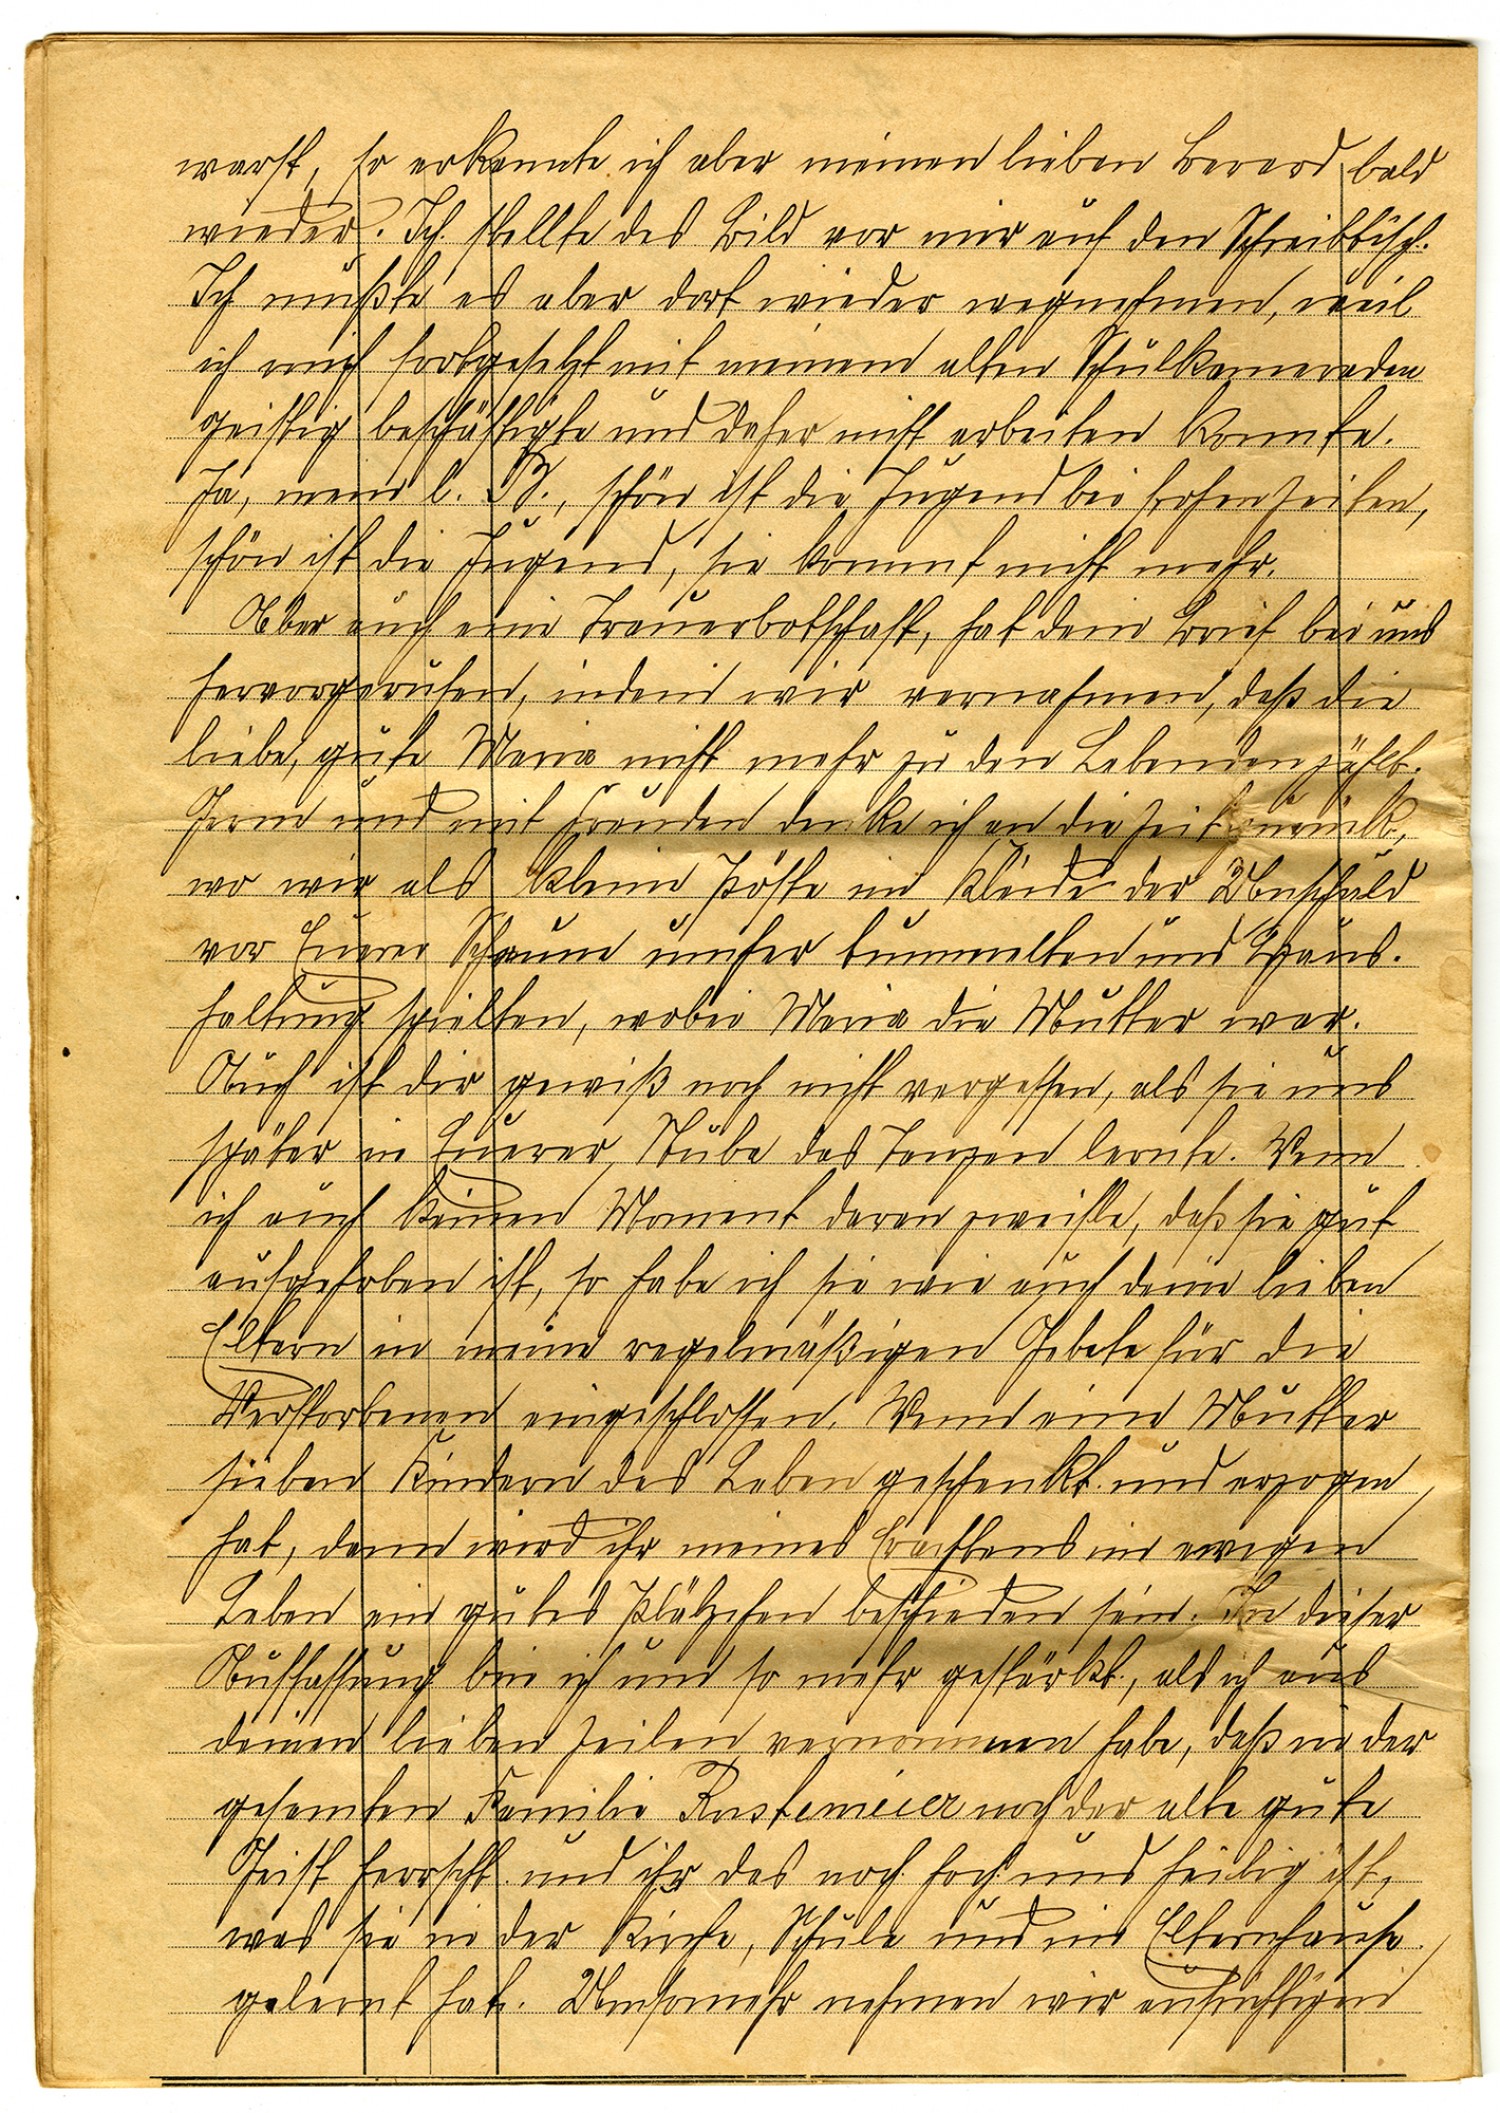 warst, so erkannte ich aber meinen lieben Berard bald
wieder. Ich stellte das Bild vor mir auf den Schreibtisch.
Ich mußte es aber dort wieder wegnehmen, weil
ich mich fortgesetzt mit meinem alten Schulkameraden
geistig beschäftigte und daher nicht arbeiten konnte.
Ja, mein l. B., schön ist die Jugend bei frohen Zeiten,
schön ist die Jugend, sie kommt nicht mehr.
Aber auch eine Trauerbotschaft, hat dein Brief bei uns
hervorgerufen, indem wir vernahmen, daß die
liebe, gute Maria nicht mehr zu den Lebenden zählt.
Gern und mit Freuden denke ich an die Zeit zurück,
wo wir als kleine Pöste im Kleide der Unschuld
vor Euerer Scheune umher tummelten und Haus-
haltung spielten, wobei Maria die Mutter war.
Auch ist dir gewiß noch nicht vergessen, als sie uns
später in Euerer Stube das Tanzen lernte. Wenn
ich auch keinen Moment daran zweifle, daß sie gut
aufgehoben ist, so habe ich sie wie auch deine lieben
Eltern in meine regelmäßigen Gebete für die
Verstorbenen eingeschlossen. Wenn eine Mutter
sieben Kindern das Leben geschenkt und erzogen
hat, dann wird ihr meines Erachtens im ewigen
Leben ein gutes Plätzchen beschieden sein. In dieser
Auffassung bin ich um so mehr gestärkt, als ich aus
deinen lieben Zeilen vernommen habe, daß in der
gesamten Familie Rustemeier noch der alte gute
Geist herrscht und ihr das noch hoch und heilig ist,
was sie in der Kirche, Schule und im Elternhause
gelernt hat. Umsomehr nehmen wir aufrichtigen